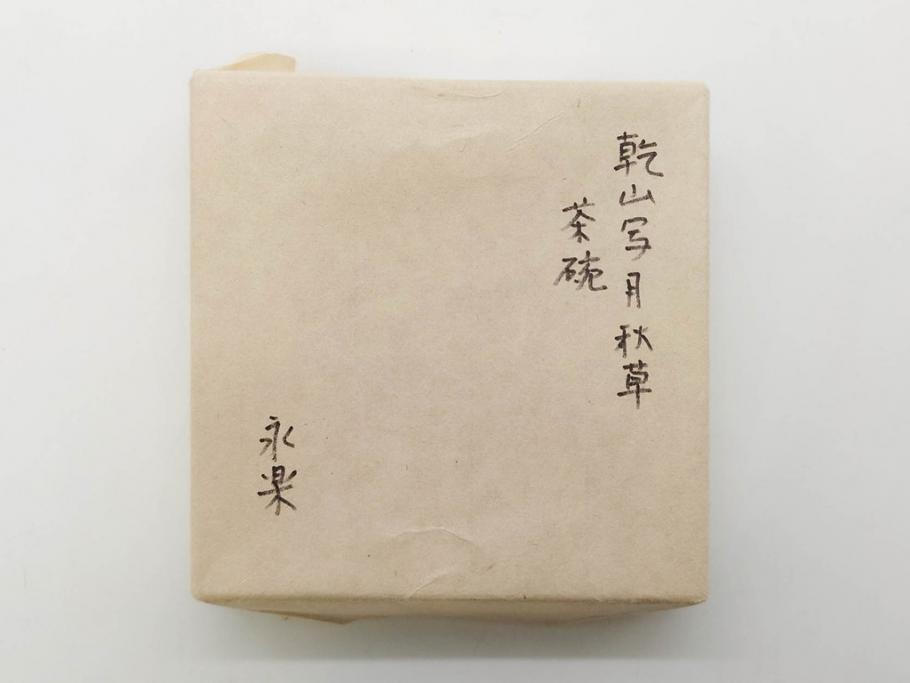 乾山写月秋草
茶碗
永楽